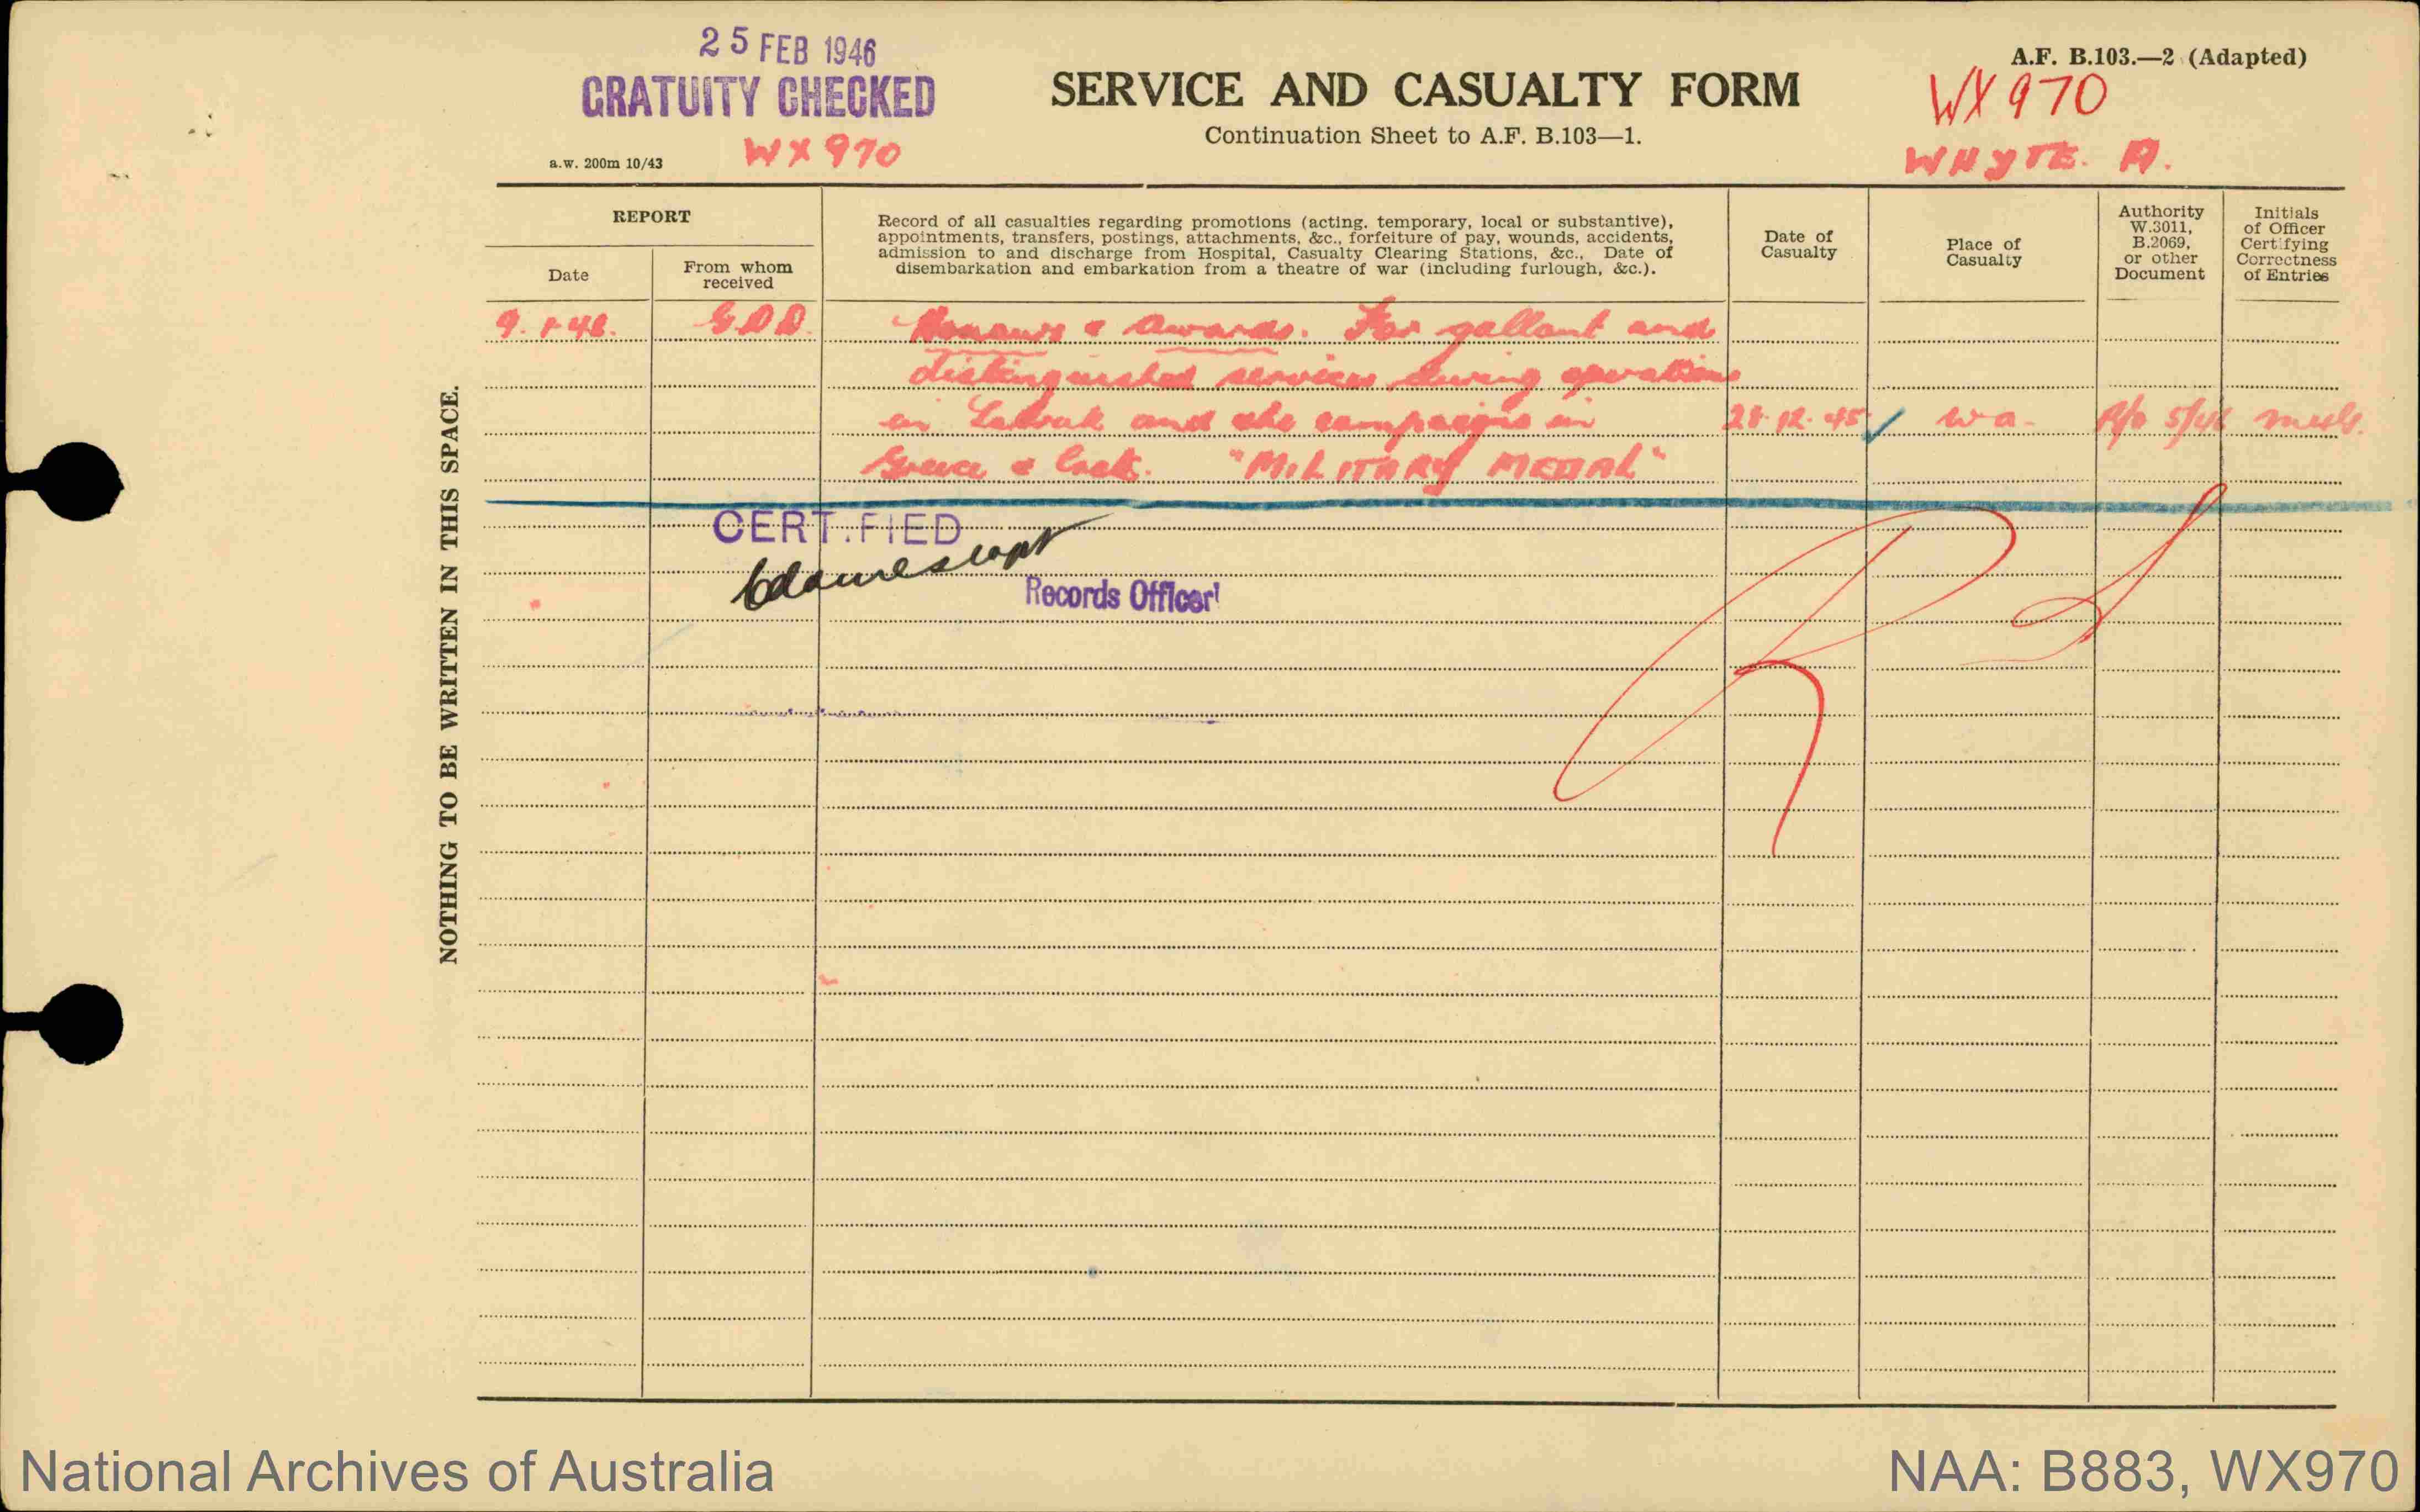 25 FEB 1946
GRATUITY CHECKED
WX970
a.w. 200m 10/43
SERVICE AND CASUALTY FORM
Continuation Sheet to A.F. B.103—1.
A.F. B.103.—2 (Adapted)
WX970
WHYTE. A.
NOTHING TO BE WRITTEN IN THIS SPACE.
REPORT
Date
From whom
received
Record of all casualties regarding promotions (acting, temporary, local or substantive),
appointments, transfers, postings, attachments, &c., forfeiture of pay, wounds, accidents,
admission to and discharge from Hospital, Casualty Clearing Stations, &c., Date of
disembarkation and embarkation from a theatre of war (including furlough, &c.).
Date of
Casualty
Place of
Casualty
Authority
W.3011,
B.2069,
or other
Document
Initials
of Officer
Certifying
Correctness
of Entries
9.1.46. G.D.D. Honours & Awards. For gallant and
distinguished services during operations
in and the campaigns in 28.12.45 W.A. R/O 5/46
Greece & "MILITARY MEDAL"
CERTIFIED
Capt
Records Officer
National Archives of Australia
NAA: B883, WX970